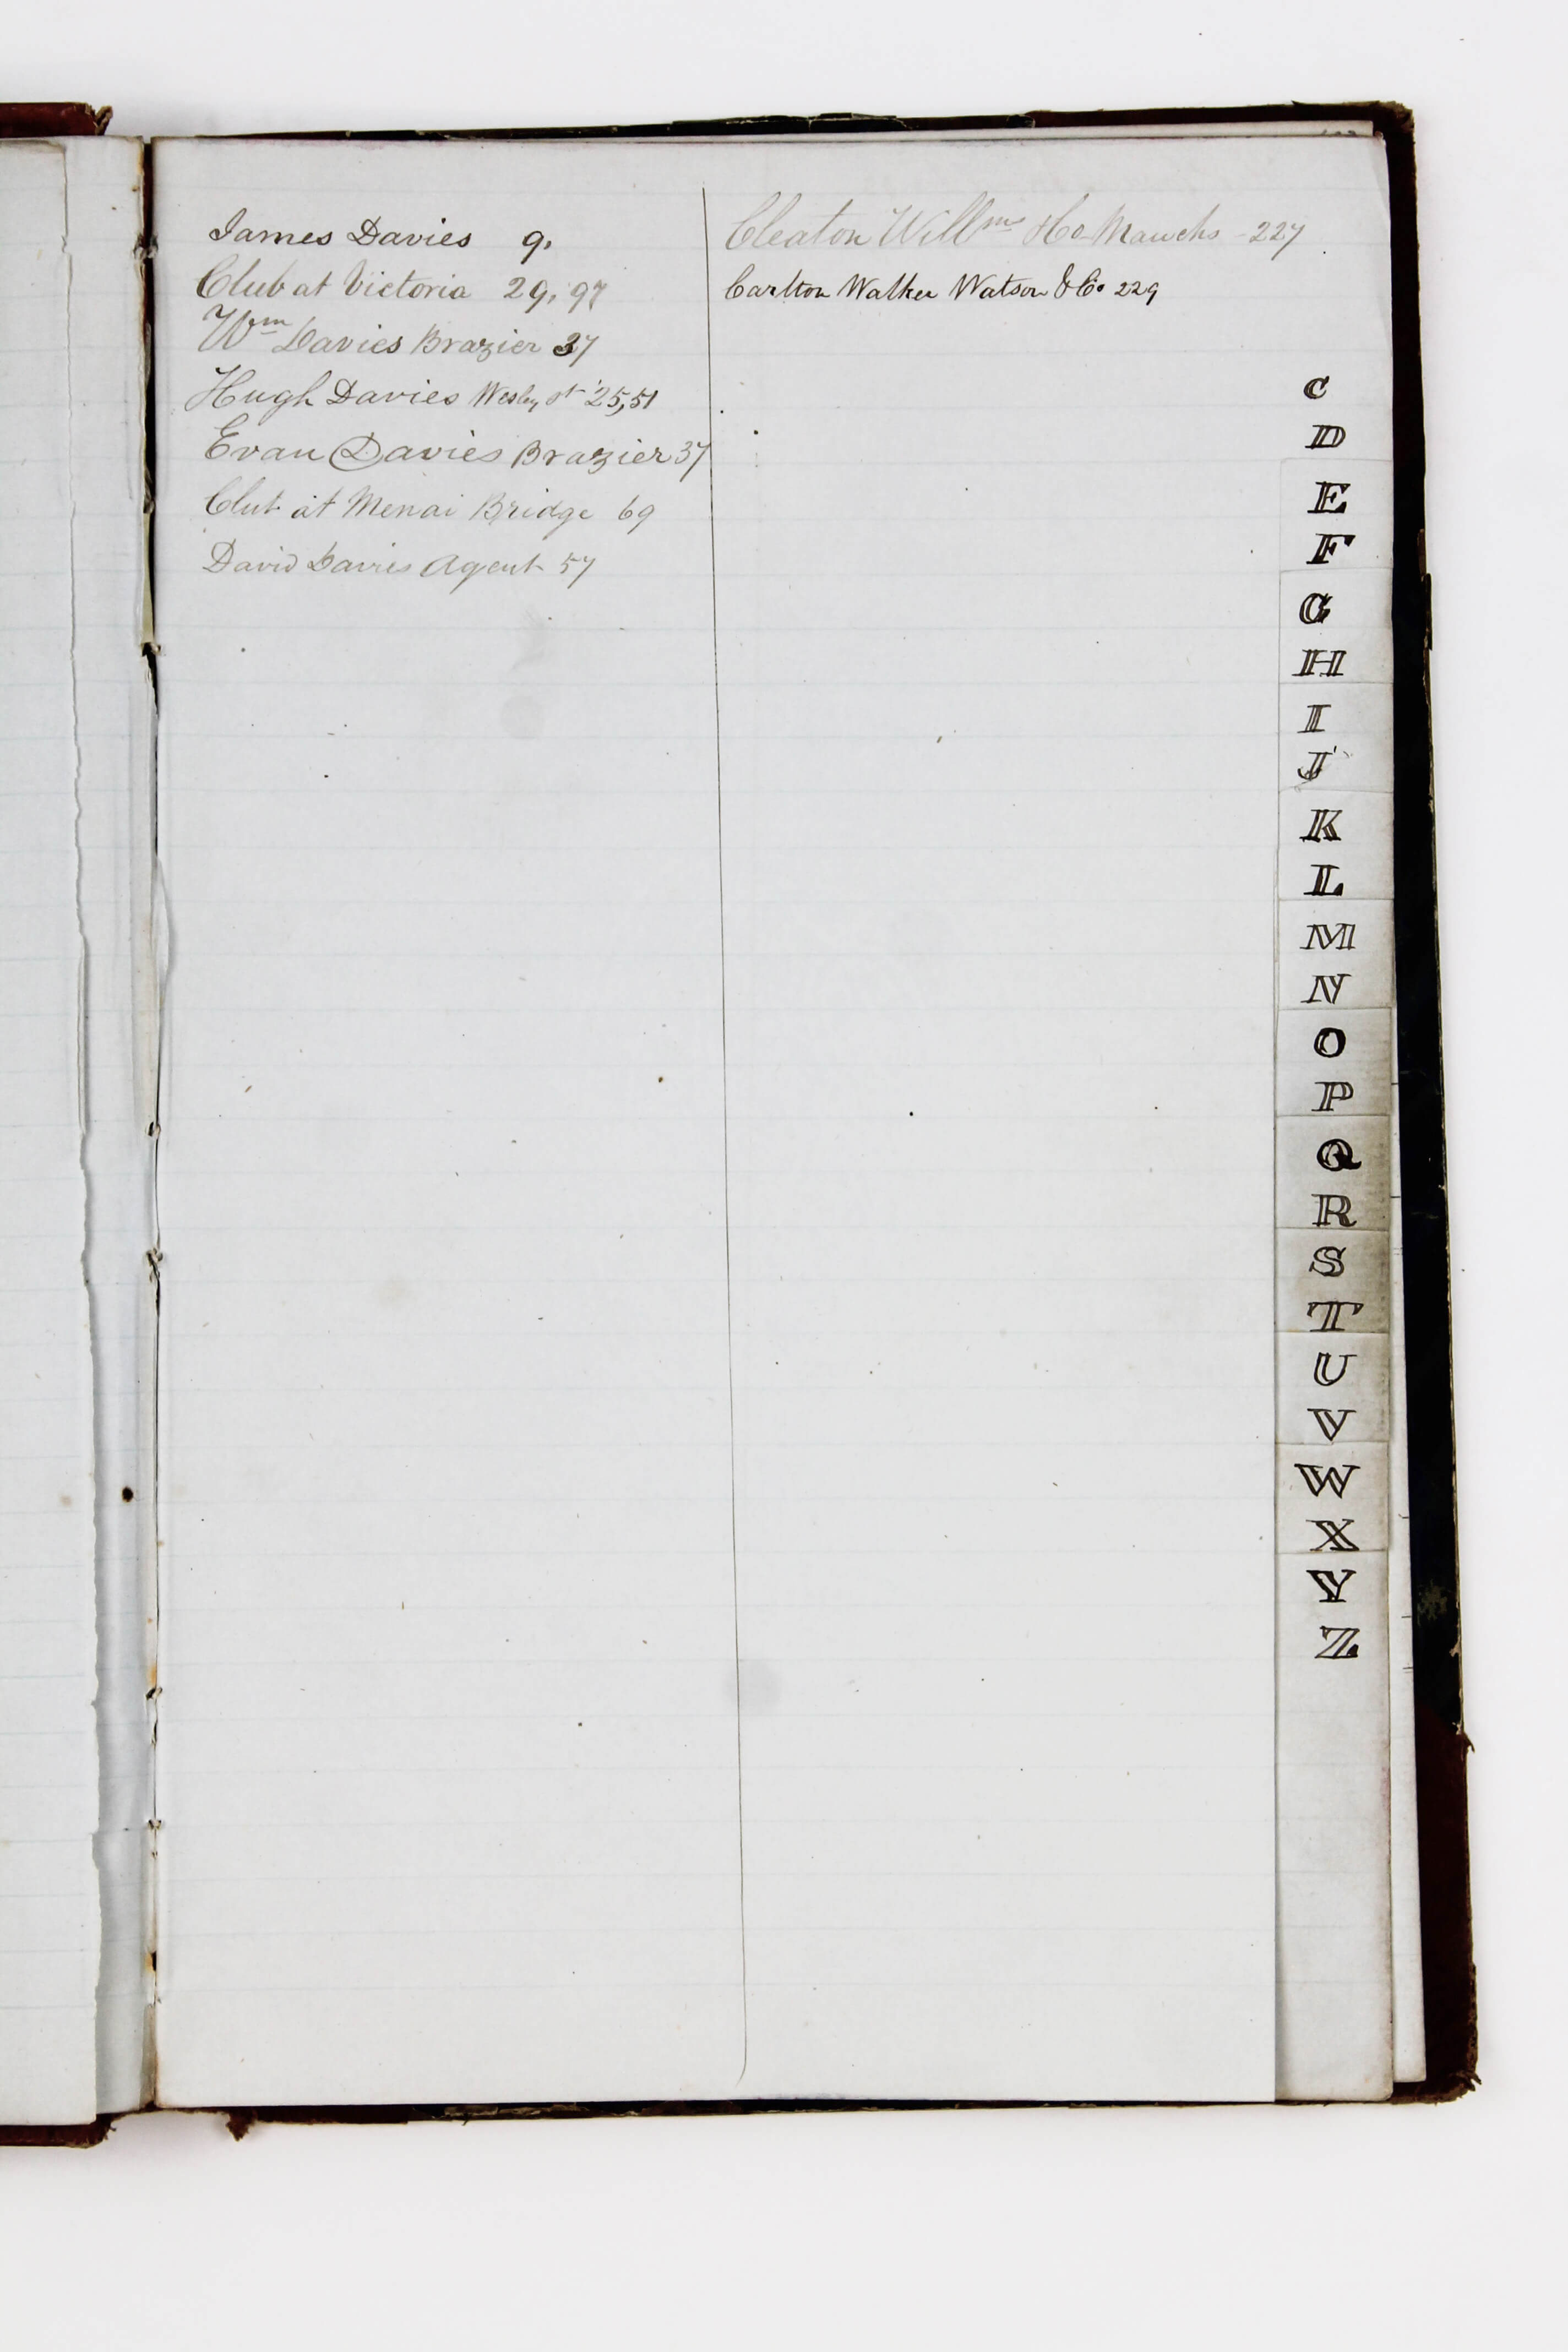 James Davies 9.
Club at Victoria 29, 97
Wm Davies Brazier 37
Hugh Davies Wesley st 25,51
Evan Davies Brazier 37
Club at Menai Bridge 69
David Davies Agent 57
Cleaton Willm & Co Manchs - 227
Carlton Walker Watson & Co 229
C
D
E
F
G
H
I
J
K
L
M
N
O
P
Q
R
S
T
U
V
W
X
Y
Z